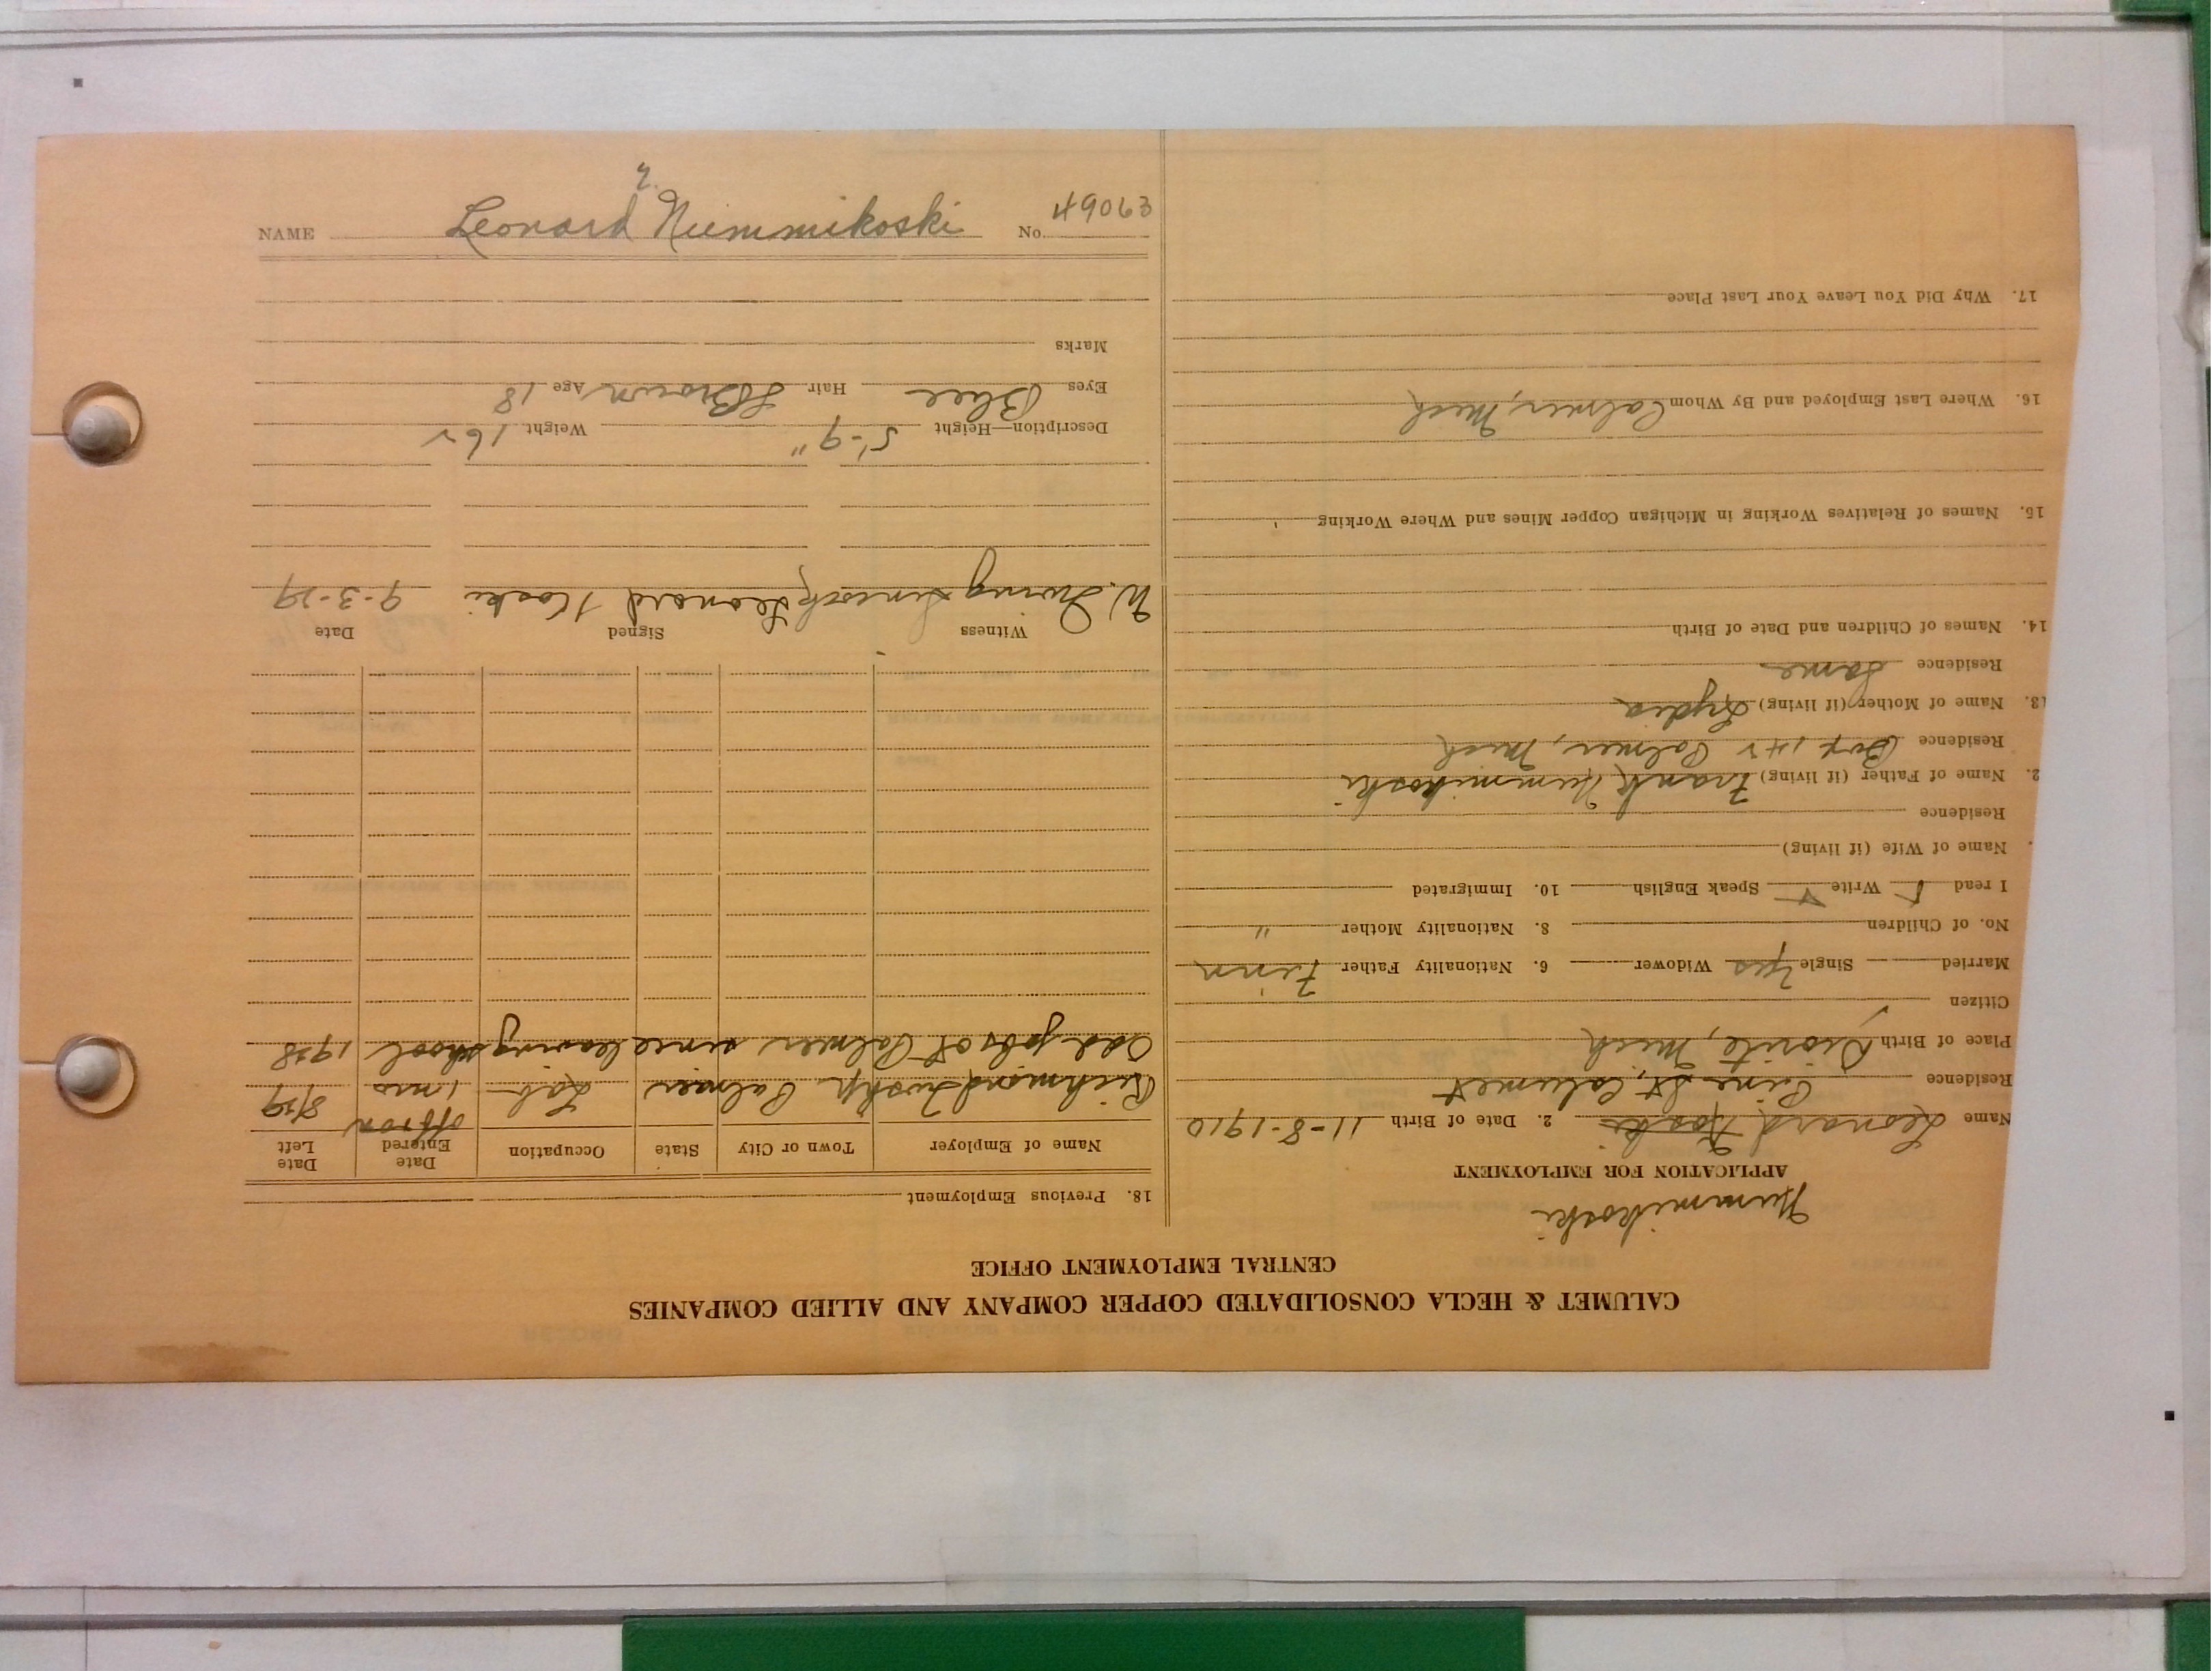 NAME Leonard Nummikoski No. 49063
CALUMET & HECLA CONSOLIDATED COPPER COMPANY AND ALLIED COMPANIES
CENTRAL EMPLOYMENT OFFICE
Nummikoski
APPLICATION FOR EMPLOYMENT
Name Leonard Koski 2. Date of Birth 11-8-1910
Residence Pine St, Calumet
Place of Birth Diorite, Mich
Citizen
Married Single Yes Widower 6. Nationality Father Finn
No. of Children 8. Nationality Mother "
I read Write Speak English 10. Immigrated
Name of Wife (if living)
Residence
2. Name of Father (if living) Frank Nummikoski
Residence Box 142 Palmer, Mich
13. Name of Mother (if living) Lydia
Residence Same
14. Names of Children and Date of Birth
15. Names of Relatives Working in Michigan Copper Mines and Where Working
16. Where Last Employed and By Whom Palmer, Mich
17. Why Did You Leave Your Last Place
18. Previous Employment
Name of Employer Town or City State Occupation Date Entered Date Left
Richmond Twshp. Palmer Lab off & on 1 mo 8/29
Odd jobs at Palmer since leaving school 1928
Witness Signed Date
W. Irving Leonard Koski 9-3-29
Description—Height 5'-9" Weight 162
Eyes Blue Hair Brown Age 18
Marks